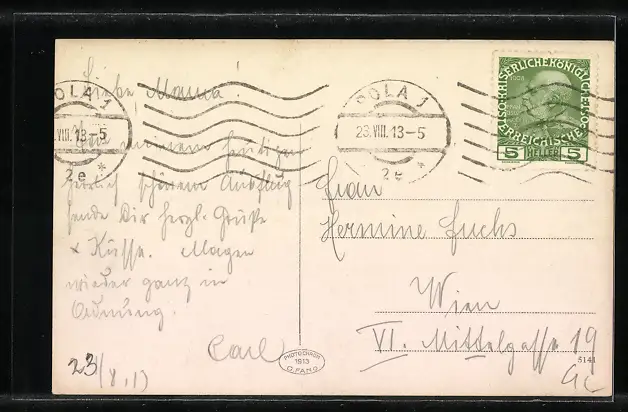 Liebe Mama!
Von meinem heutigen
herrlich schönen Ausflug
sende Dir herzl. Grüße
& Küsse. Magen
wieder ganz in
Ordnung.
Carl
23/8.13
POLA 1
VIII.13-5
2e *
POLA 1
23.VIII.13-5
2e *
KAISERLICHE KÖNIGLICHE
ÖSTERREICHISCHE
5 HELLER 5
Frau
Hermine Fuchs
Wien
VI. Mittelgasse 19
PHOTOCHROM
1913
G. FANO
5141